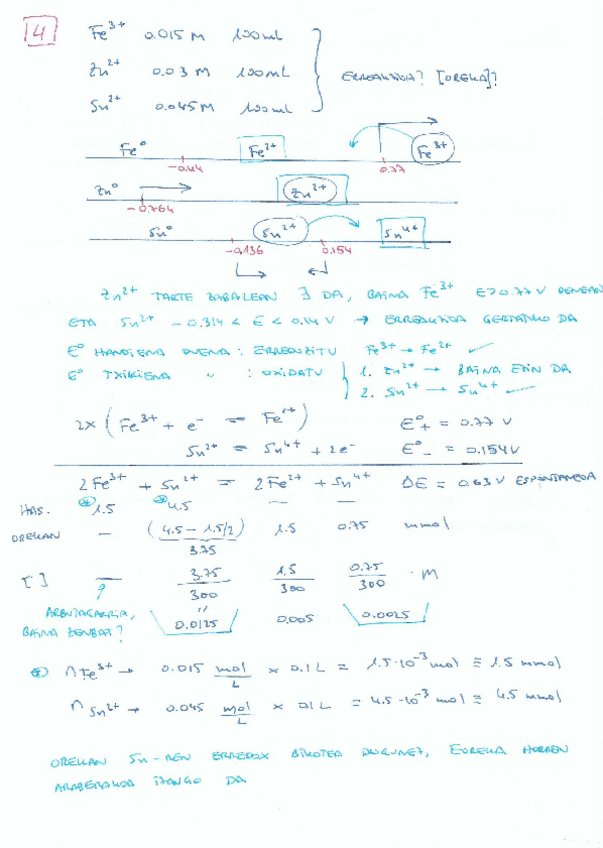 4
Fe³⁺ 0.015 M 100 mL
Zn²⁺ 0.03 M 100 mL
Sn²⁺ 0.045 M 100 mL
ERREAKZIOA? [OREKA]?
Fe⁰ Fe²⁺ Fe³⁺
-0.44 0.77
Zn⁰ Zn²⁺
-0.764
Sn⁰ Sn²⁺ Sn⁴⁺
-0.136 0.154
Zn²⁺ TARTE ZABALEAN ∃ DA, BAINA Fe³⁺ E>0.77 V DENEAN
ETA Sn²⁺ -0.314 < E < 0.14 V → ERREAKZIOA GERTATUKO DA
E⁰ HANDIENA DUENA: ERREDUZITU Fe³⁺ → Fe²⁺ ✓
E⁰ TXIKIENA " : OXIDATU 1. Zn²⁺ → BAINA EZIN DA
2. Sn²⁺ → Sn⁴⁺ ✓
2x (Fe³⁺ + e⁻ = Fe²⁺) E⁰₊ = 0.77 V
Sn²⁺ = Sn⁴⁺ + 2e⁻ E⁰₋ = 0.154 V
2Fe³⁺ + Sn²⁺ = 2Fe²⁺ + Sn⁴⁺ ΔE = 0.63 V ESPONTANEOA
HAS. * 1.5 * 4.5 — —
OREKAN — (4.5 - 1.5/2) 1.5 0.75 mmol
3.75
[ ] — 3.75/300 1.5/300 0.75/300 · M
?
ARBUIAGARRIA, " 0.0125 0.005 0.0025
BAINA ZENBAT?
* nFe³⁺ → 0.015 mol/L × 0.1 L = 1.5·10⁻³ mol ≡ 1.5 mmol
nSn²⁺ → 0.045 mol/L × 0.1 L = 4.5·10⁻³ mol ≡ 4.5 mmol
OREKAN Sn-REN ERREDOX BIKOTEA DUGUNEZ, EOREKA HORREN
ARABERAKOA IZANGO DA